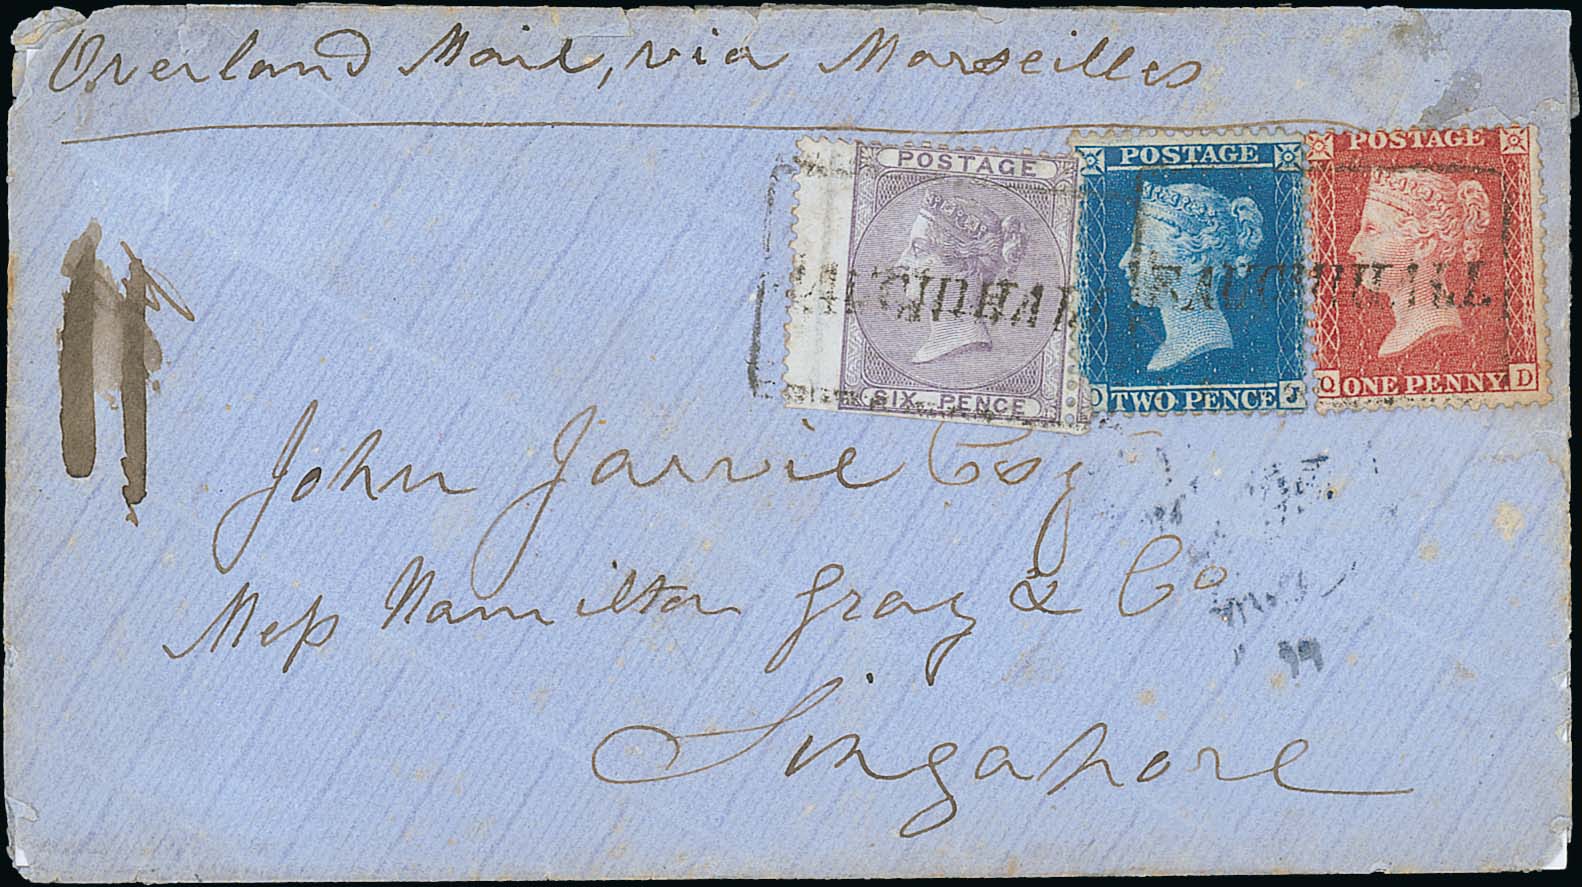 Overland Mail, via Marseilles
POSTAGE
SIX PENCE
POSTAGE
O TWO PENCE J
POSTAGE
Q ONE PENNY D
AUCHHALL
John Jarvie Esq
Mess Hamilton Gray & Co
Singapore